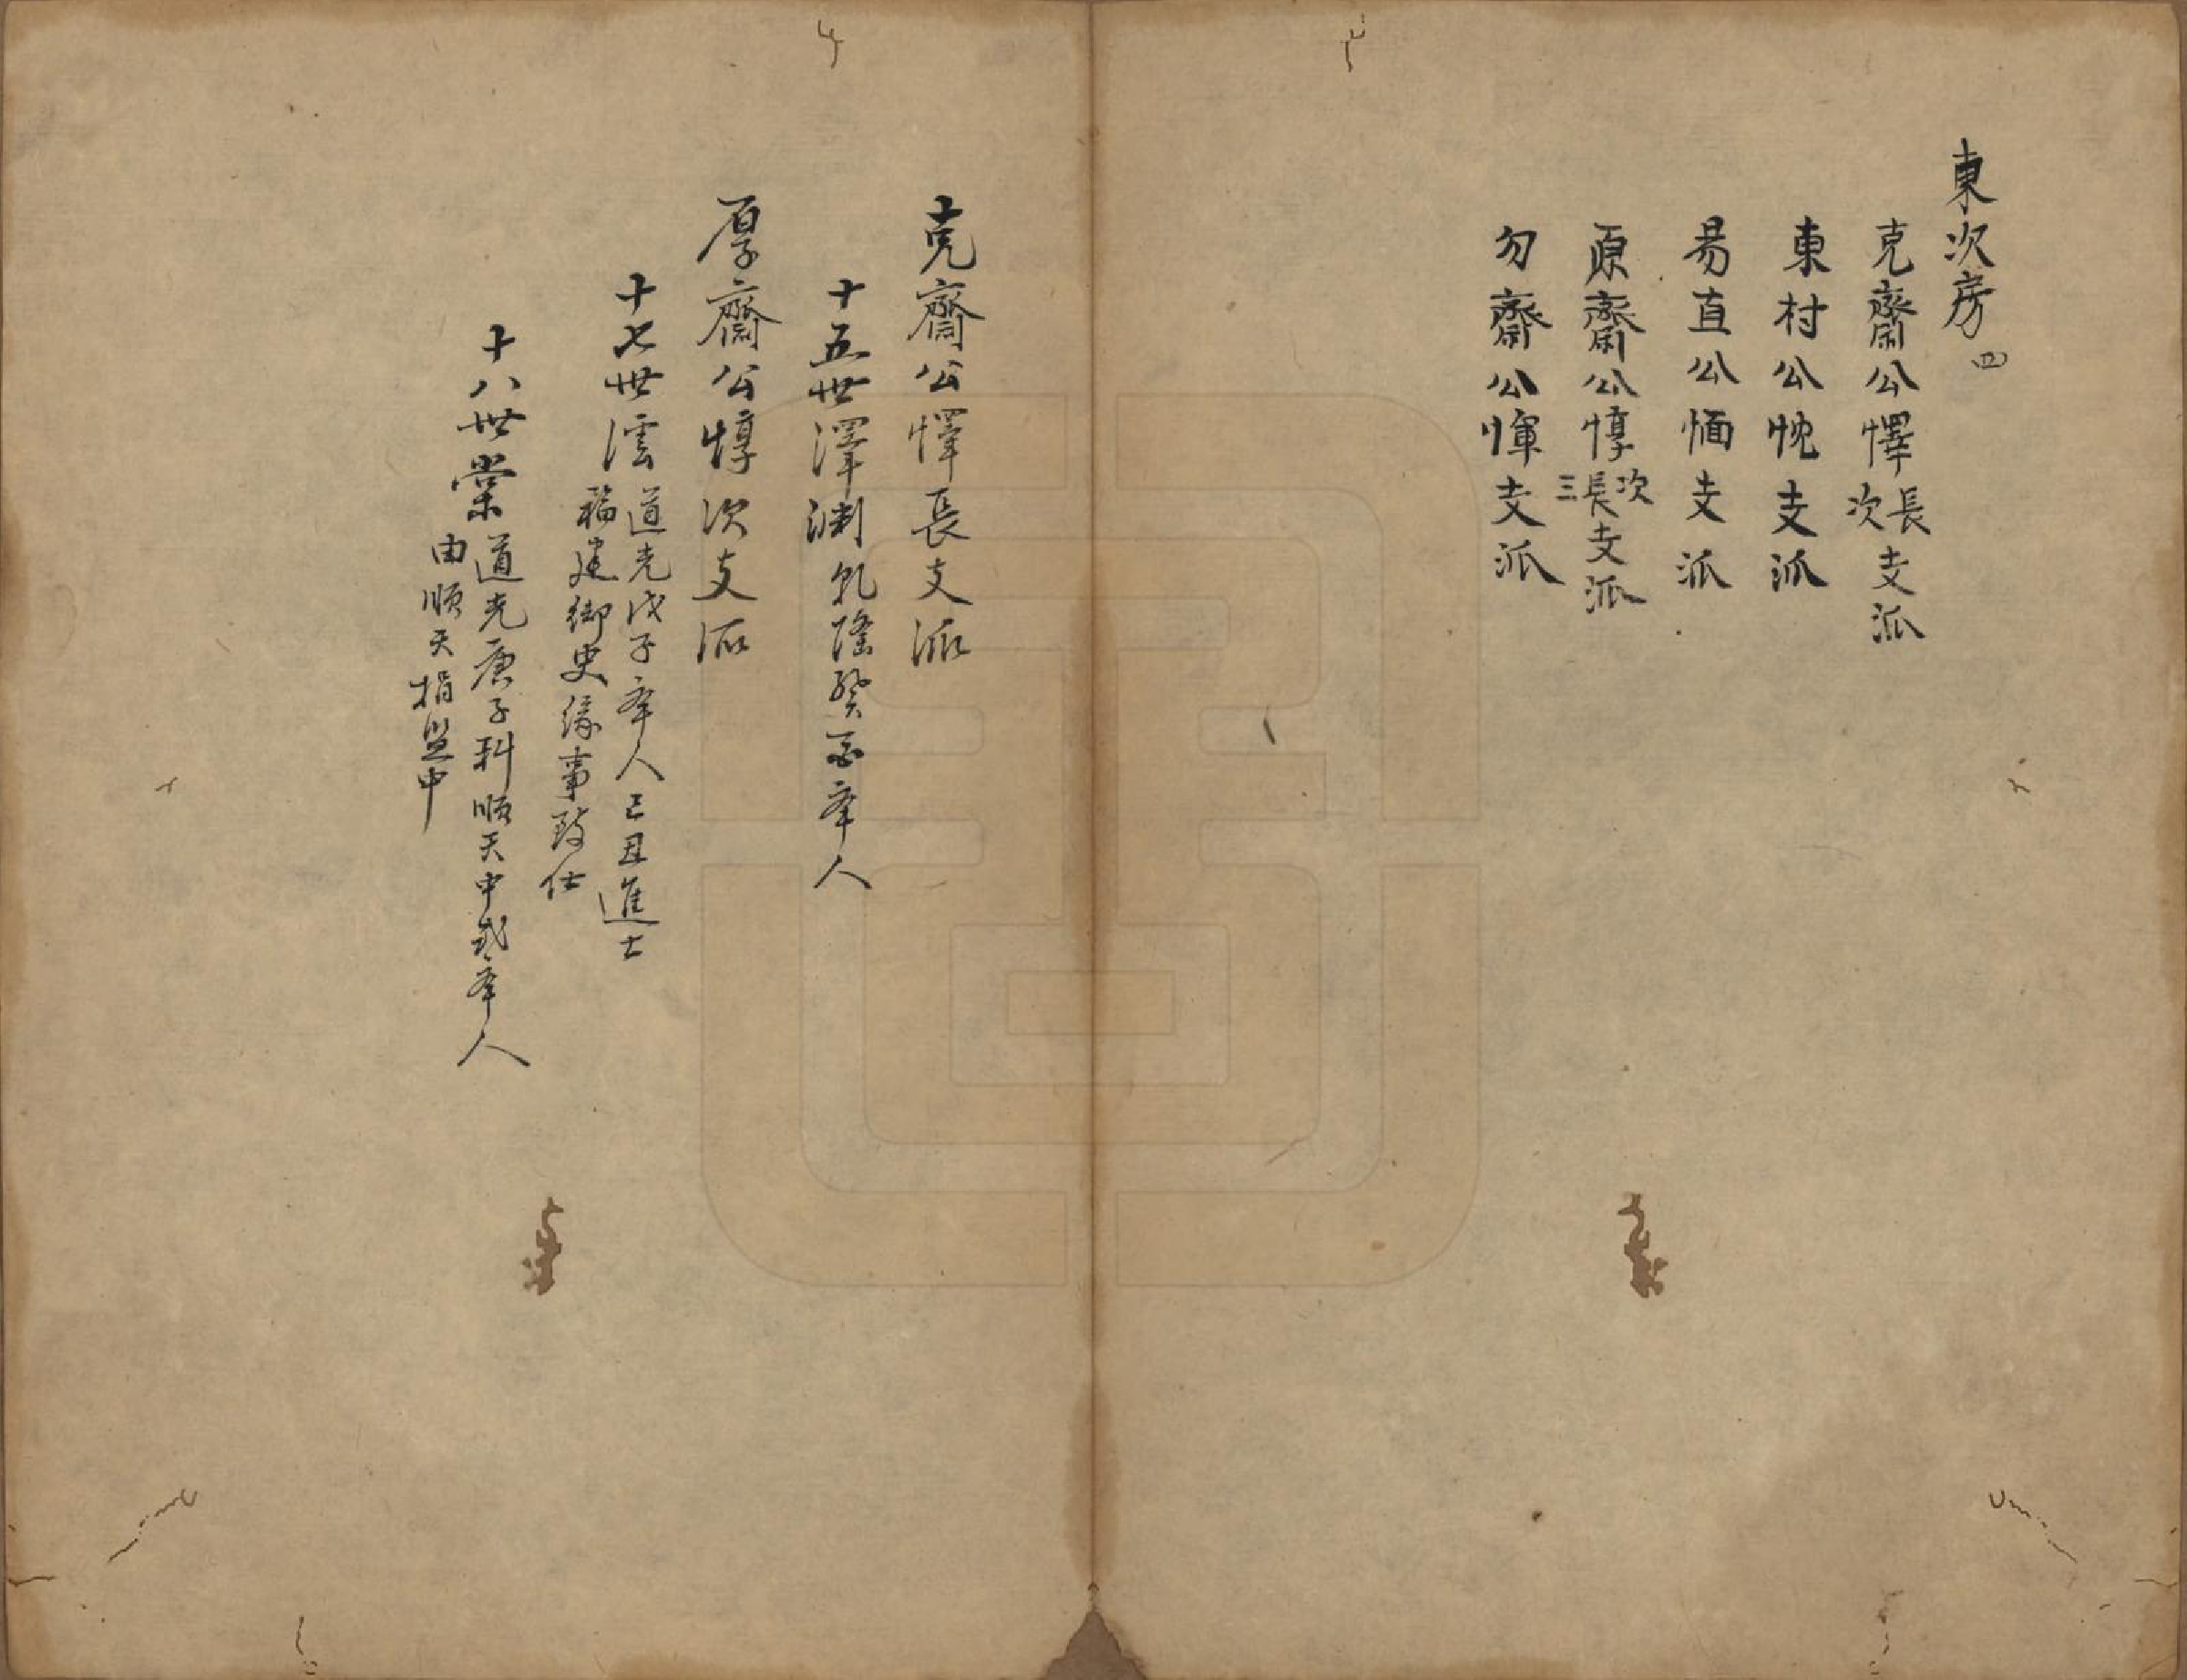 東次房四
克齋公懌長次支派
東村公忱支派
易直公愐支派
原齋公惇次長三支派
勿齋公惲支派
克齋公懌長支派
十五世澤渊乹隆癸酉举人
厚齋公惇次支派
十七世澐道光戊子举人己丑進士
福建御史缘事致仕
十八世棠道光庚子科順天中式举人
由順天捐監中